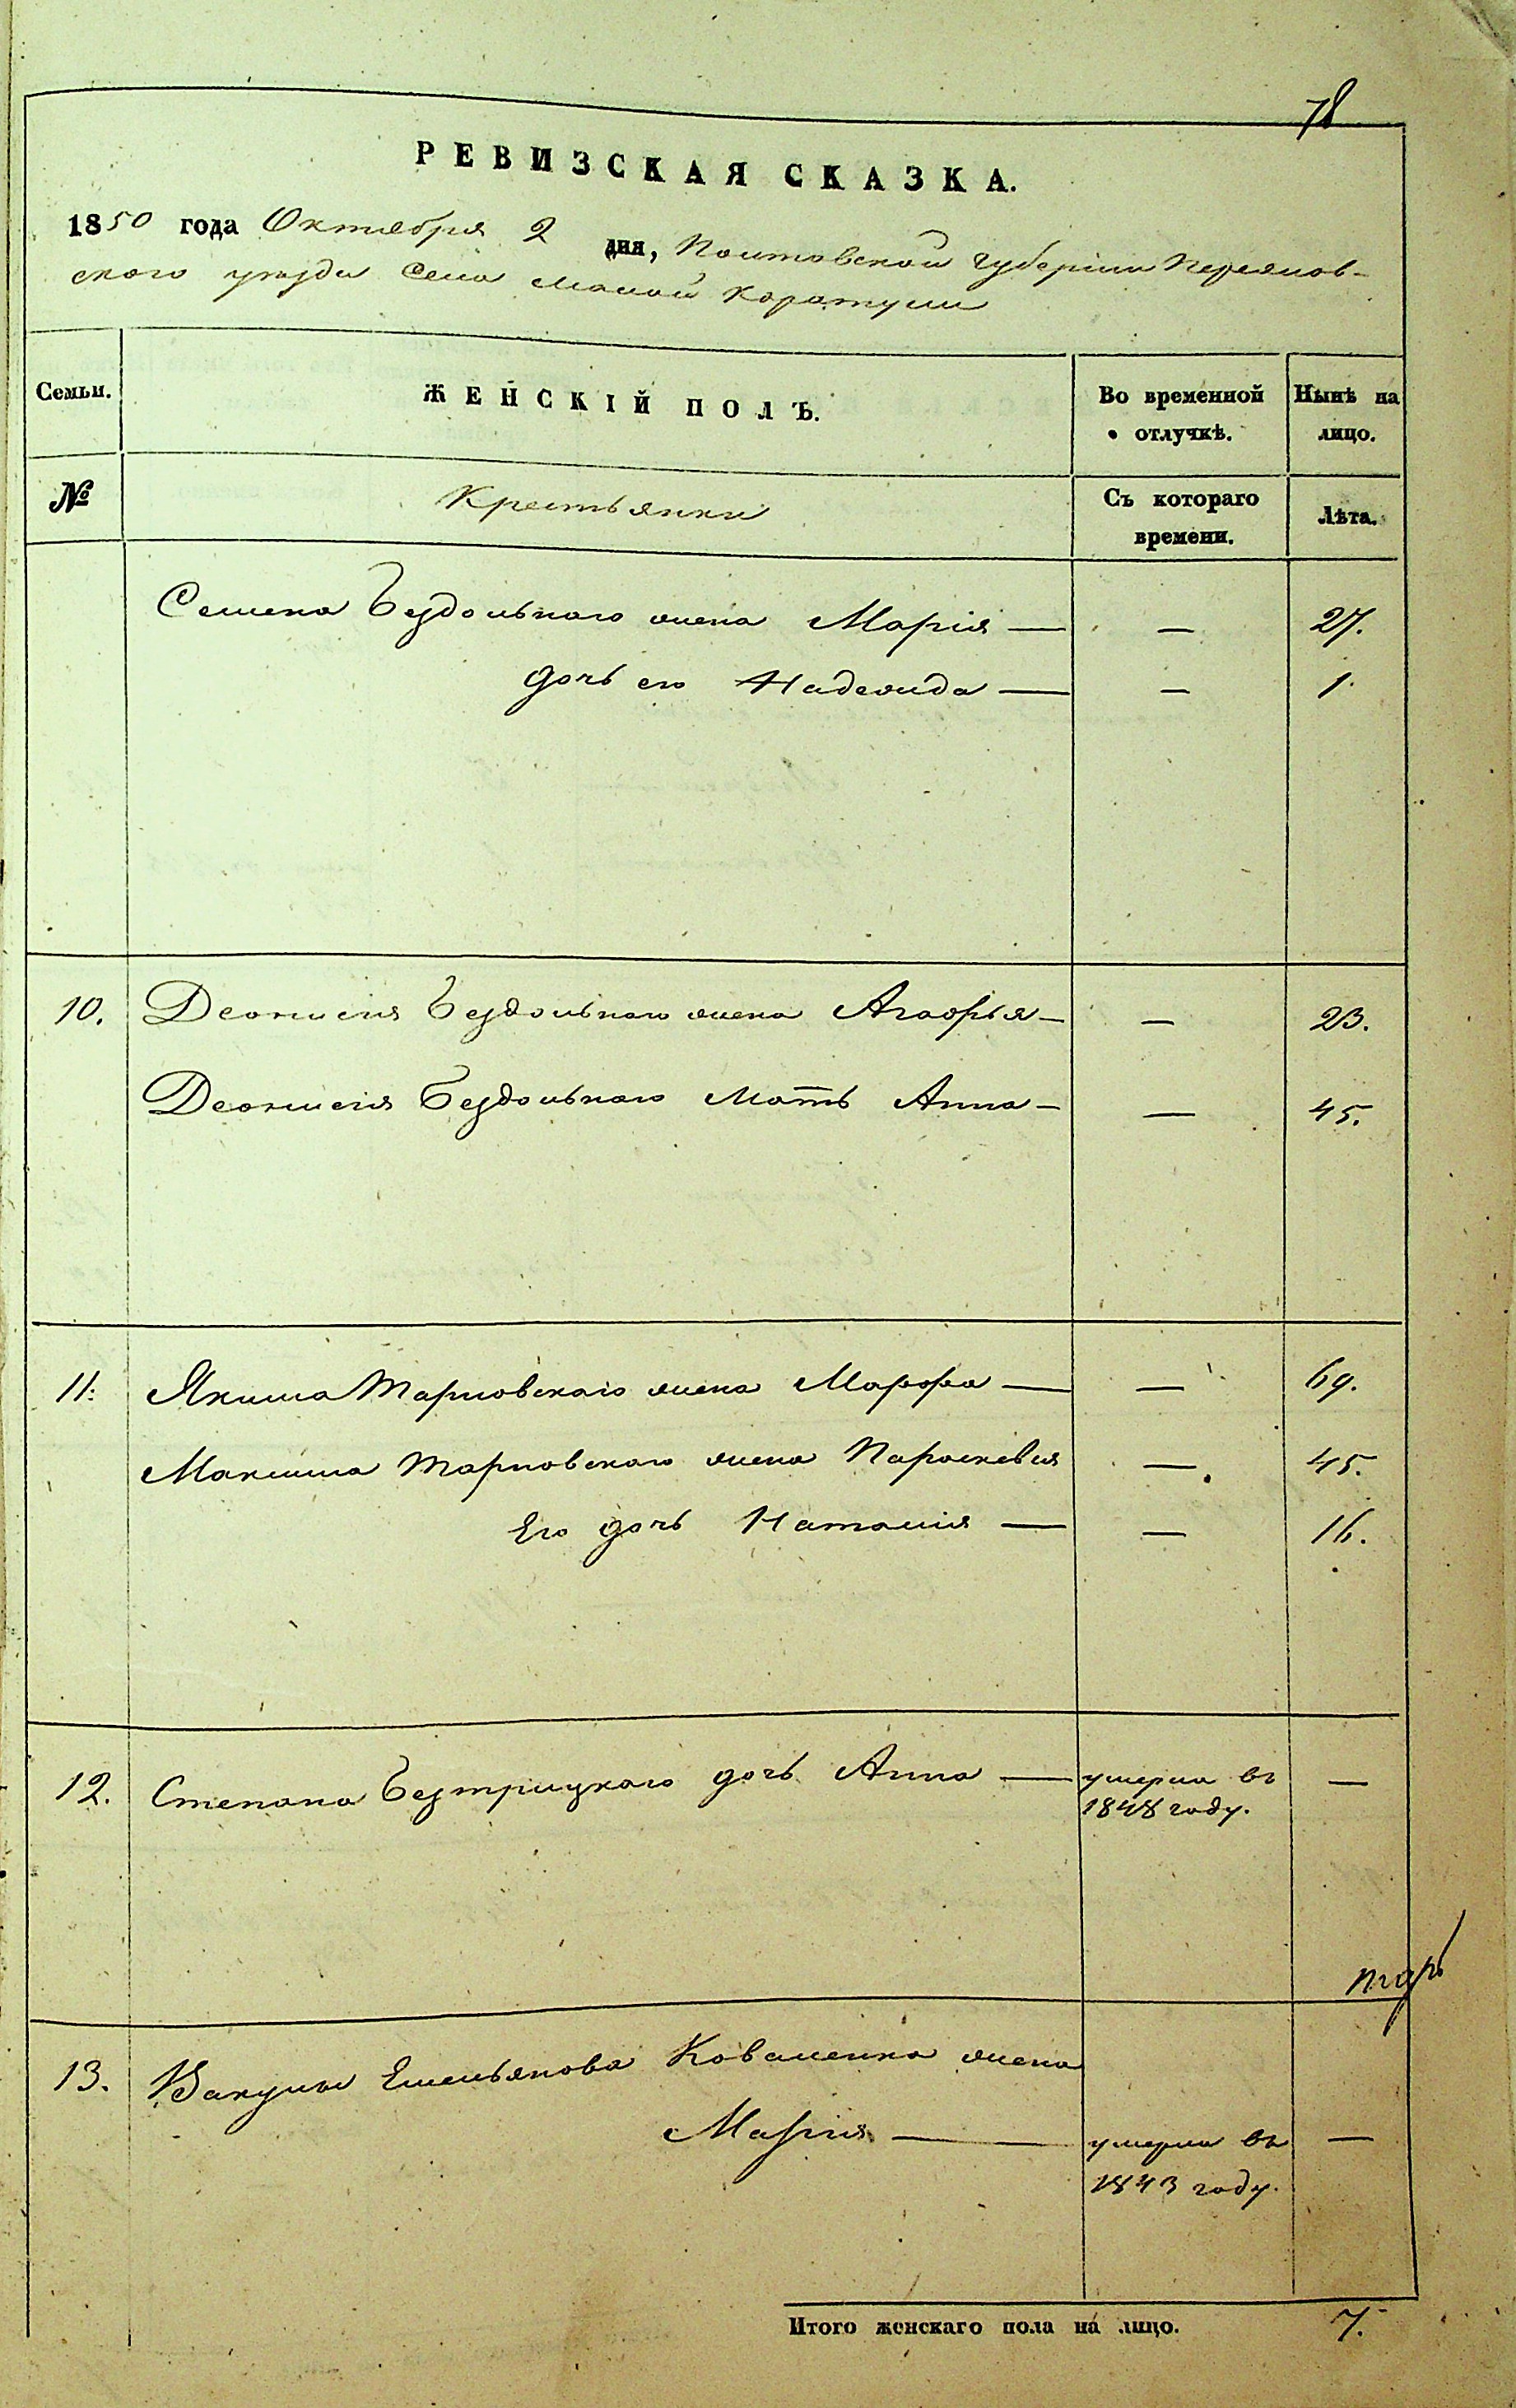 78
РЕВИЗСКАЯ СКАЗКА.
1850 года Октября 2 дня, Полтавской губерніи Переяслов-
ского уезда села малой каратули
Семьи. ЖЕНСКІЙ ПОЛЪ. Во временной отлучкѣ. Нынѣ на лицо.
№ Крестьянки Съ котораго времени. Лѣта.
Семена Бездольного жена Марія — — 27.
дочь его Надежда — — 1.
10. Деонисія Бездольного жена Агафья — — 23.
Деонисія Бездольного мать Анна — — 45.
11. Якима Тарновского жена Марфа — — 69.
Максима Тарновского жена Параскевія — 45.
Его дочь Наталія — — 16.
12. Степана Безтрицкого дочь Анна — умерла въ —
1848 году.
13. Вакулы Емельянова Коваленка жена
Марія — умерла въ —
1843 году.
Итого женскаго пола на лицо. 7.